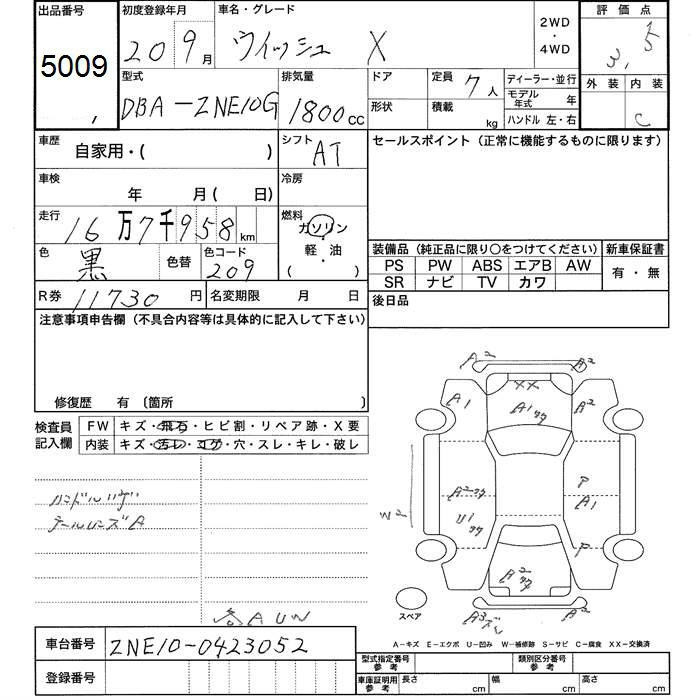 出品番号 初度登録年月 車名・グレード 2WD・4WD 評価点
5009 20 9月 ウィッシュ X 3.5
型式 排気量 ドア 定員 7人 ディーラー・並行 外装 内装
DBA-ZNE10G 1800cc 形状 積載 kg モデル年式 年 C
ハンドル 左・右
車歴 自家用・( ) シフト AT セールスポイント（正常に機能するものに限ります）
車検 年 月( 日) 冷房
走行 16万7千958km 燃料 ガソリン・軽・油 ( )
色 黒 色替 色コード 209 装備品（純正品に限り○をつけてください） 新車保証書
PS PW ABS エアB AW 有・無
SR ナビ TV カワ
R券 11730円 名変期限 月 日 後日品
注意事項申告欄（不具合内容等は具体的に記入して下さい）
修復歴 有 〔箇所 〕
検査員記入欄 FW キズ・飛石・ヒビ割・リペア跡・X要
内装 キズ・汚レ・コゲ・穴・スレ・キレ・破レ
ハンドルリザ
テールレンズA
各AUW
A2 A2
XX
A1 A1 A2
P
A2 A1
U1 P
A2
A3
スペア
A-キズ E-エクボ U-凹み W-補修跡 S-サビ C-腐食 XX-交換済
車台番号 ZNE10-0423052
登録番号
型式指定番号 参考 類別区分番号 参考
車庫証明用 参考 長さ cm 幅 cm 高さ cm